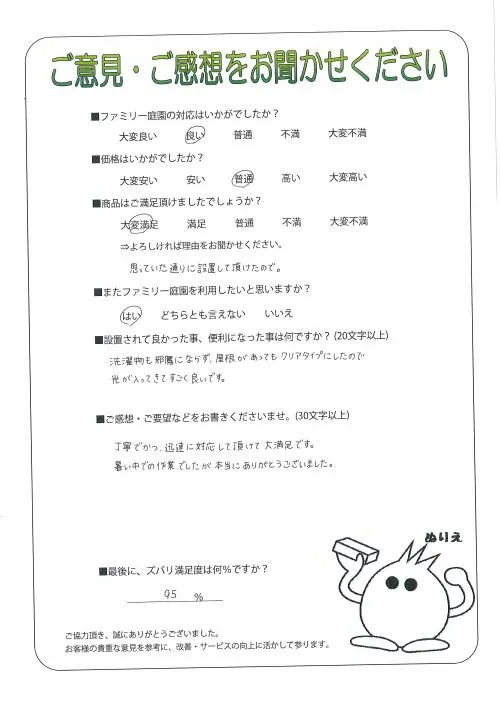 ご意見・ご感想をお聞かせください
■ファミリー庭園の対応はいかがでしたか？
大変良い 良い 普通 不満 大変不満
■価格はいかがでしたか？
大変安い 安い 普通 高い 大変高い
■商品はご満足頂けましたでしょうか？
大変満足 満足 普通 不満 大変不満
⇒よろしければ理由をお聞かせください。
思っていた通りに設置して頂けたので。
■またファミリー庭園を利用したいと思いますか？
はい どちらとも言えない いいえ
■設置されて良かった事、便利になった事は何ですか？(20文字以上)
洗濯物も邪魔にならず、屋根があってもクリアタイプにしたので
光が入ってきてすごく良いです。
■ご感想・ご要望などをお書きくださいませ。(30文字以上)
丁寧でかつ、迅速に対応して頂けて大満足です。
暑い中での作業でしたが本当にありがとうございました。
ぬりえ
■最後に、ズバリ満足度は何％ですか？
95 ％
ご協力頂き、誠にありがとうございました。
お客様の貴重な意見を参考に、改善・サービスの向上に活かして参ります。